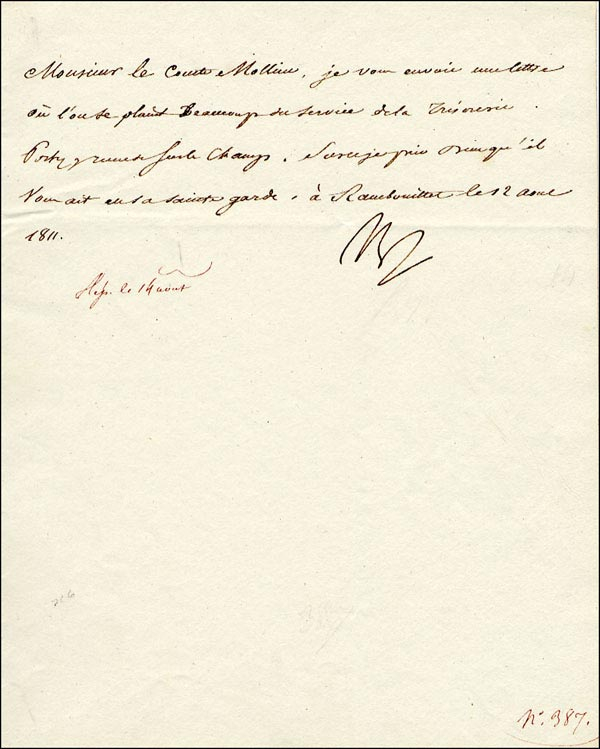 Monsieur le Comte Mollien, je vous envoie une lettre
où l'on se plaint beaucoup du service de la Trésorerie.
Portez y remede sur le Champ. Sur ce je prie Dieu qu'il
Vous ait en sa sainte garde. à Rambouillet le 12 aout
1811.
Rep. le 14 aout
N°. 387.